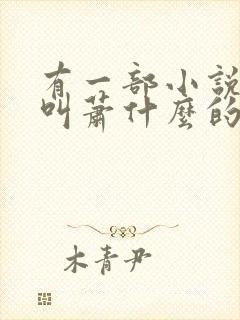 有一部小說
叫蕭什麼的
木青尹